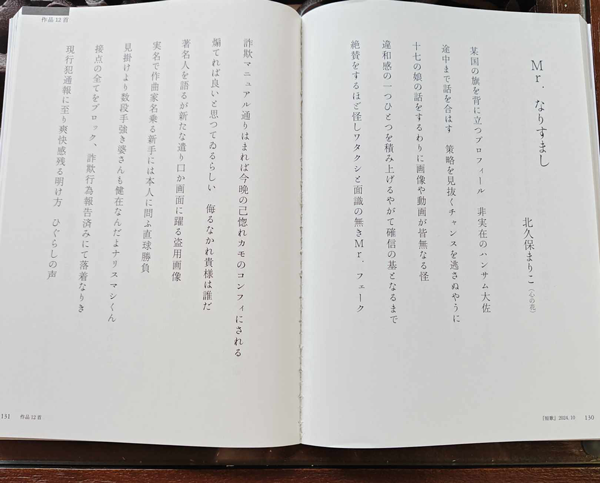 Mr.なりすまし
北久保まりこ(心の花)
某国の旗を背に立つプロフィール 非実在のハンサム大佐
途中まで話を合はす 策略を見抜くチャンスを逃さぬやうに
十七の娘の話をするわりに画像や動画が皆無なる怪
違和感の一つひとつを積み上げるやがて確信の基となるまで
絶賛をするほど怪しワタクシと面識の無きMr.フェーク
130
2024.10
作品12首
詐欺マニュアル通りはまれば今晩の己惚れカモのコンフィにされる
煽てれば良いと思つてゐるらしい 侮るなかれ貴様は誰だ
著名人を語るが新たな遣り口か画面に躍る盗用画像
実名で作曲家名乗る新手には本人に問ふ直球勝負
見掛けより数段手強き婆さんも健在なんだよナリスマシくん
接点の全てをブロック、詐欺行為報告済みにて落着なりき
現行犯通報に至り爽快感残る明け方 ひぐらしの声
131 作品12首